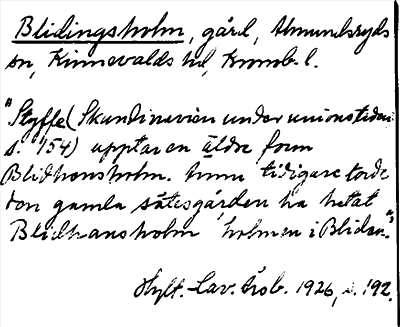 Blidingsholm, gård, Almundsryds
sn, Kinnevalds hd, Kronob. l.
"Styffe (Skandinavien under unionstiden
s. 154) upptar en äldre form
Blidhonsholm. Ännu tidigare torde
den gamla sätesgården ha hetat
Blidhansholm 'holmen i Blidan'."
Hylt.-Cav. Årsb. 1926, s. 192.